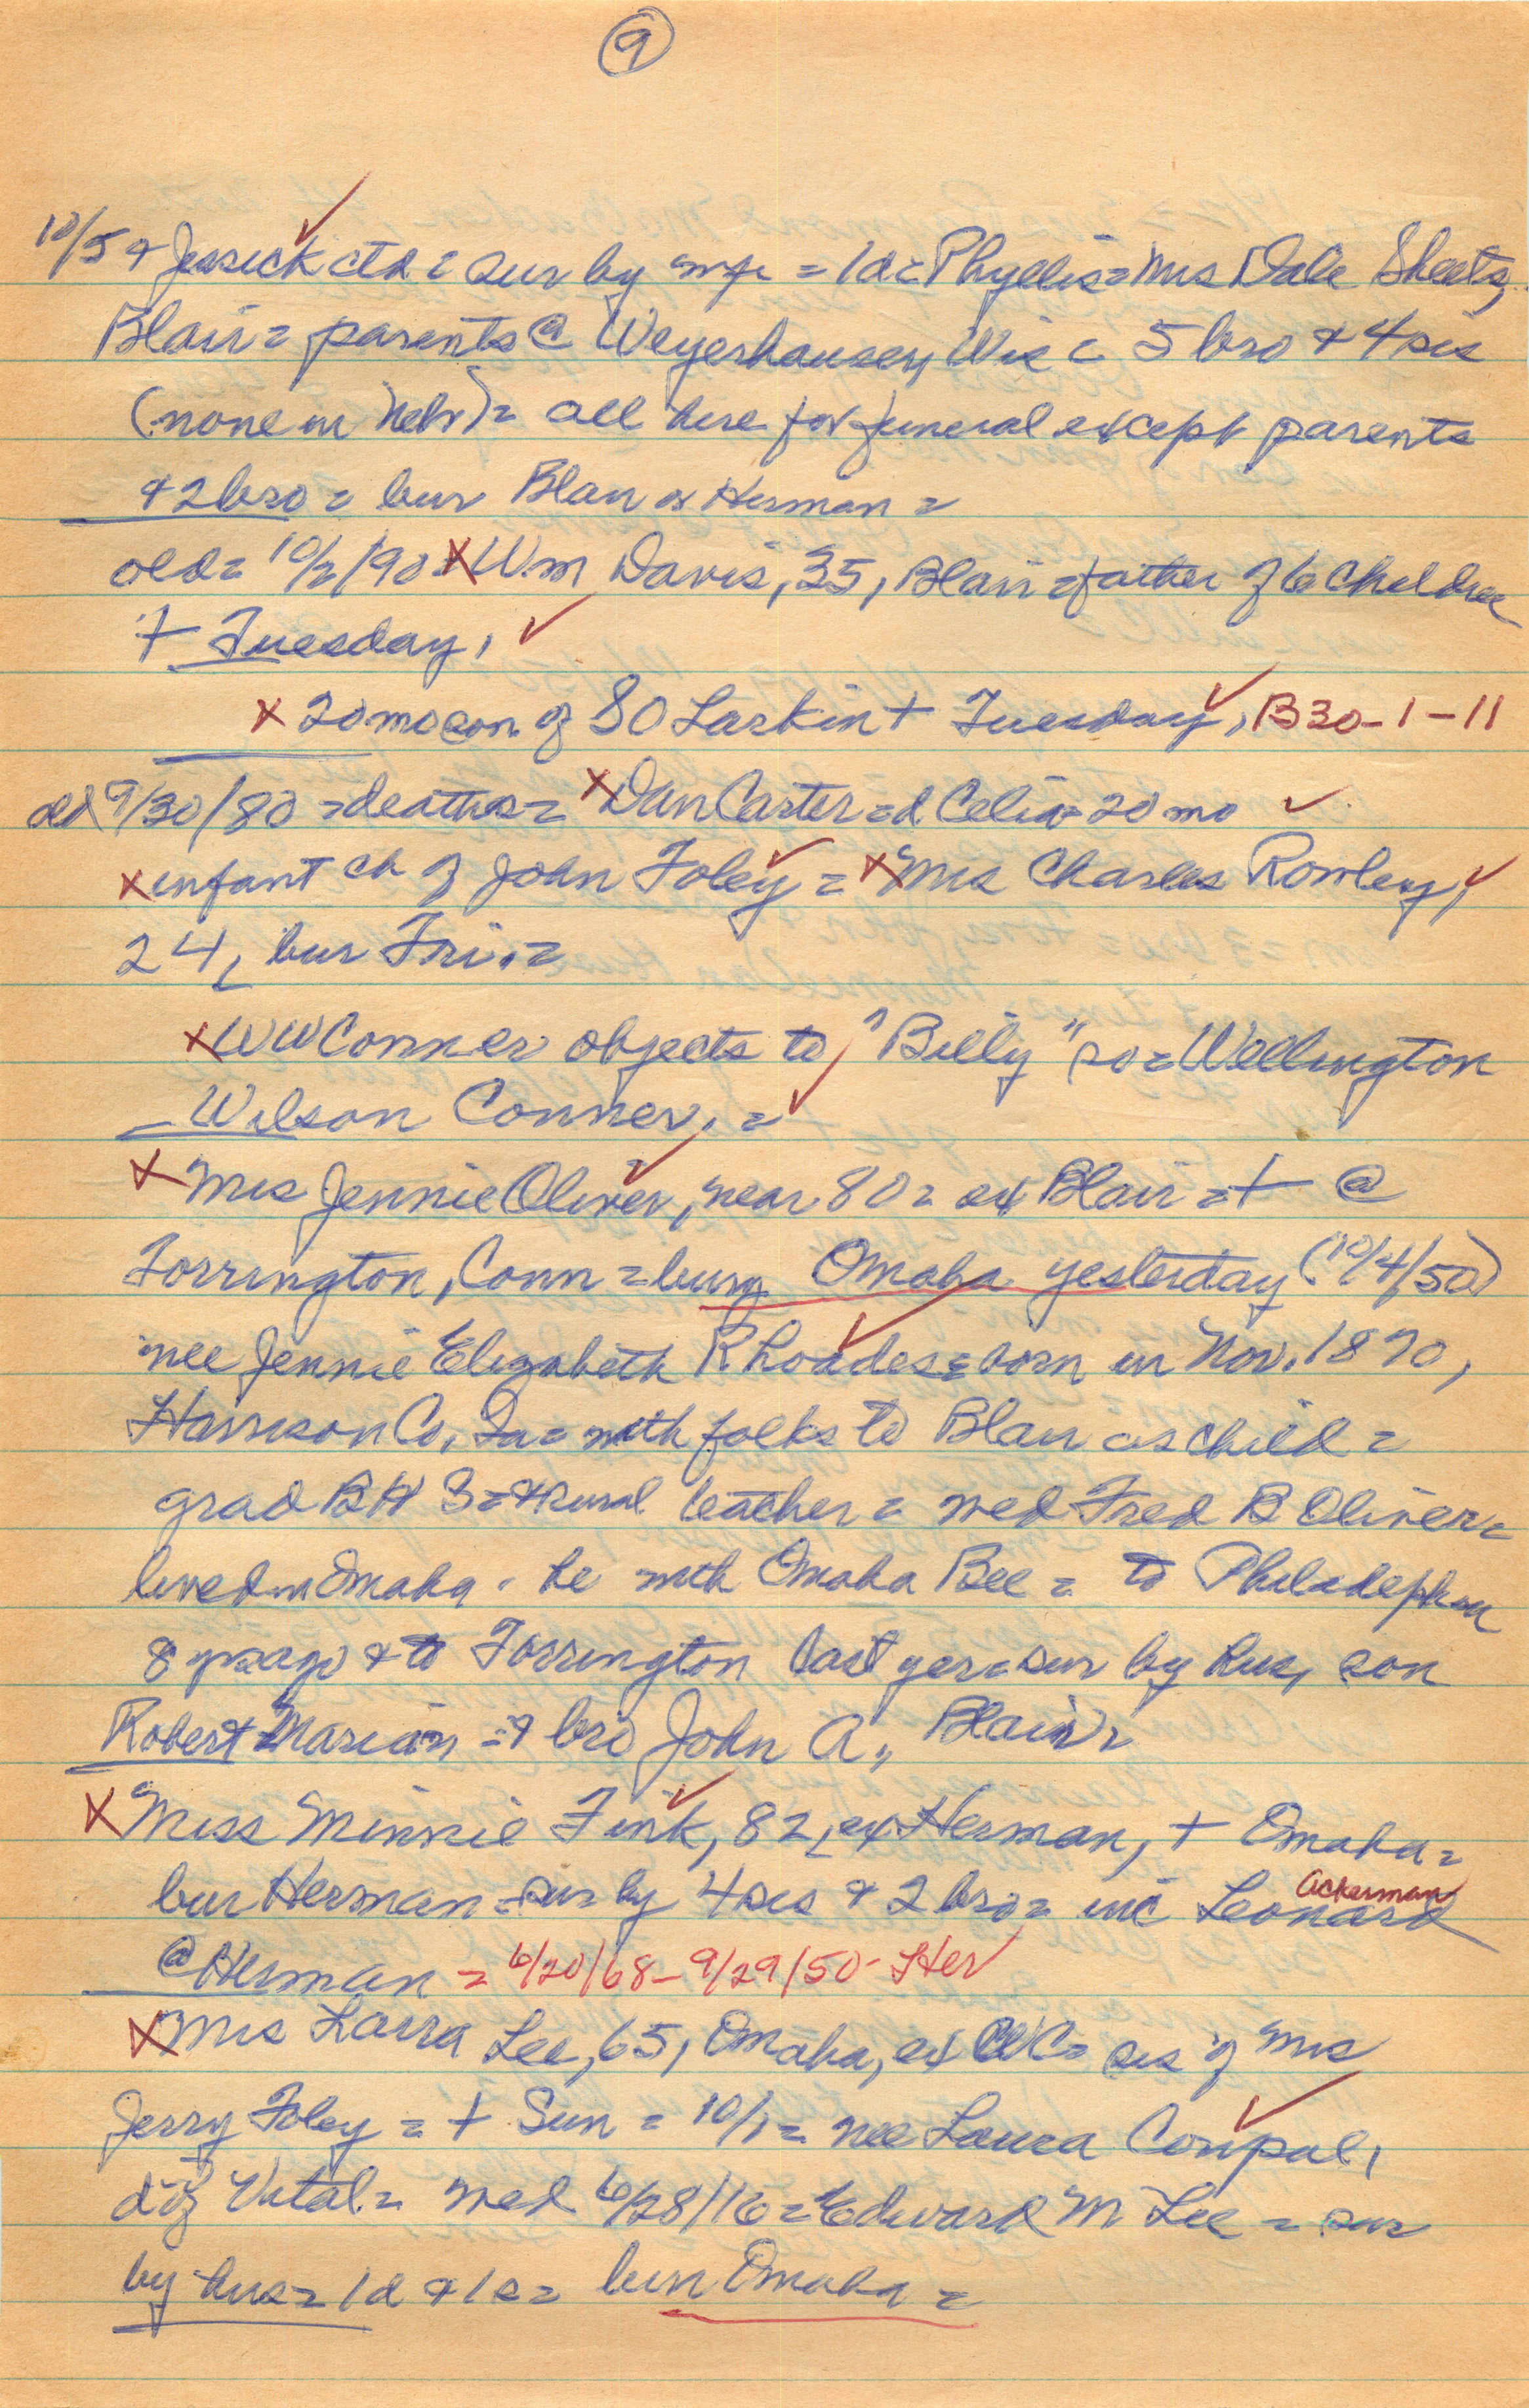 9
10/5 + Jessick ctd = sur by wfe = 1d = Phyllis = Mrs Dale Sheets,
Blair = parents @ Weyerhauser, Wis = 5 bro + 4 sis
(none in Nebr) = all here for funeral except parents
+ 2 bro = bur Blair or Herman =
old = 10/2/90 X Wm Davis, 35, Blair = father of 6 children
+ Tuesday, ✓
x 20 mo son of SO Larkin + Tuesday, B30-1-11
old 9/30/80 = deaths = x Dan Carter = d Celia = 20 mo ✓
x infant ch of John Foley = x Mrs Charles Rowley,
24, bur Fri. =
x WW Conner objects to "Billy" so = Wellington
Wilson Conner. =
X Mrs Jennie Oliver, near 80 = ex Blair = + @
Torrington, Conn = bury Omaha yesterday (10/4/50)
nee Jennie Elizabeth Rhoades = born in Nov. 1870,
Harrison Co, Ia = with folks to Blair as child =
grad BHS = + rural teacher = wed Fred B Oliver =
lived in Omaha - he with Omaha Bee = to Philadephia
8 yrs ago + to Torrington last yer = sur by hus, son
Robert = Marian = + bro John A., Blair =
X Miss Minnie Fink, 82, ex Herman, + Omaha =
bur Herman = sur by 4 sis + 2 bro = inc Leonard Ackerman
@ Herman = 6/20/68 - 9/29/50 - Her
X Mrs Laura Lee, 65, Omaha, ex WC = sis of Mrs
Jerry Foley = + Sun = 10/1 = nee Laura Compal,
d of Vital = wed 6/28/16 = Edward M Lee = sur
by hus = 1d + 1s = bur Omaha =